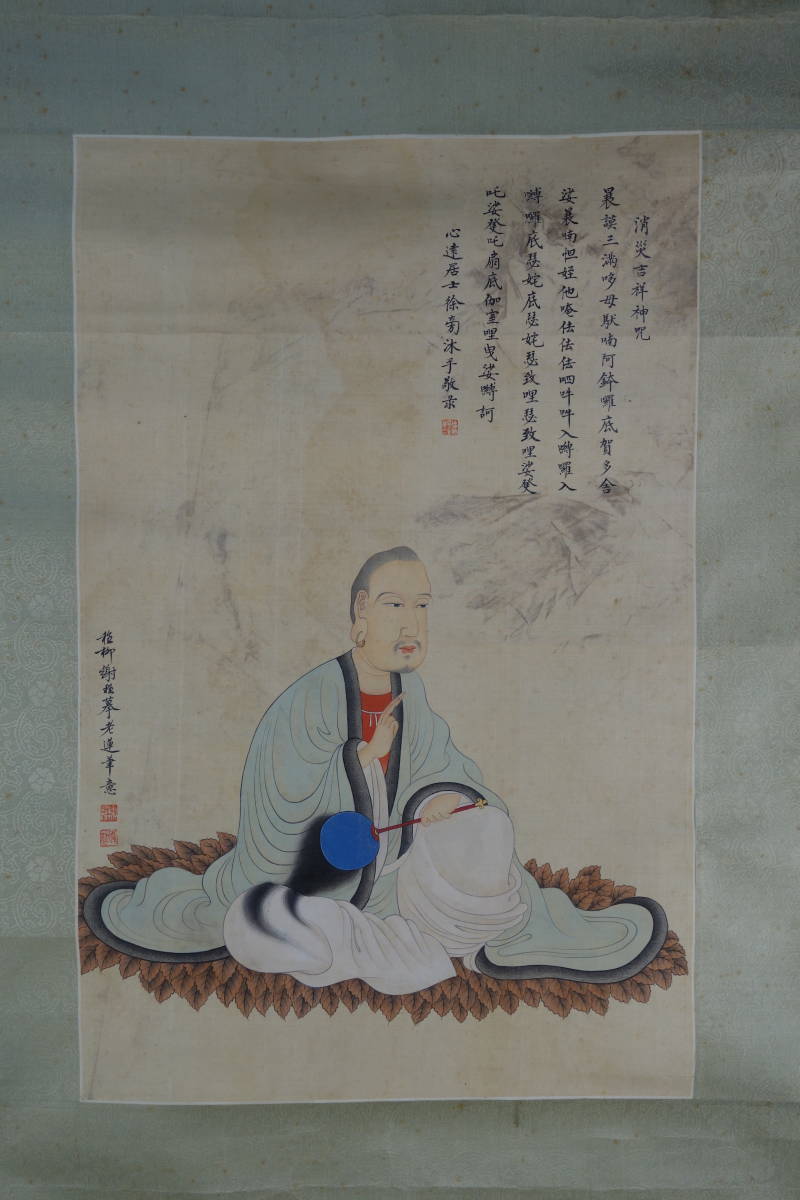 消災吉祥神咒
曩謨三滿哆母馱喃阿鉢囉底賀多舍
娑曩喃怛姪他唵佉佉佉呬吽吽入嚩囉入
嚩囉底瑟姹底瑟姹瑟致哩瑟致哩娑癹
吒娑癹吒扇底伽室哩曳娑嚩訶
心遠居士徐 沐手敬录
稚柳謝稚摹老蓮筆意